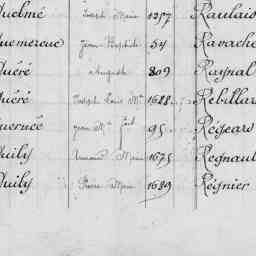 Joseph Marie 1257 Raulais
Jean Baptiste 54 Ravache
Quéré Auguste 809 Raynal
Quéré Joseph Louis Mie 1628 Rebillar
95 Régears
Quily Armand Marie 1675 Regnaul
Quily Pierre Marie 1689 Régnier